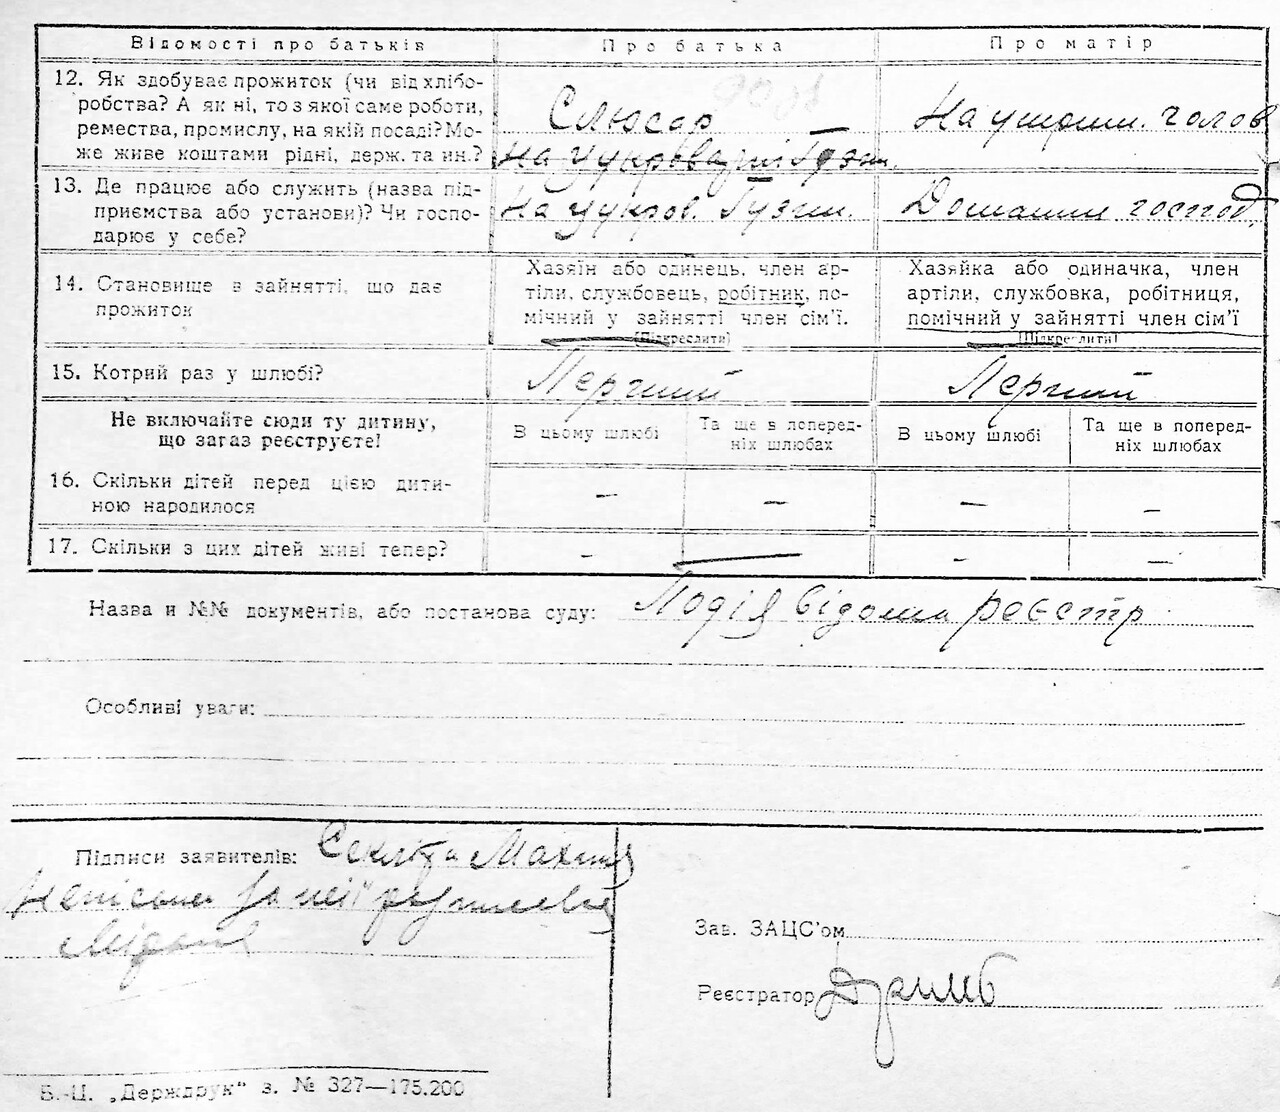 Відомості про батьків
Про батька
Про матір
12. Як здобуває прожиток (чи від хлібо-
робства? А як ні, то з якої саме роботи,
ремества, промислу, на якій посаді? Мо-
же живе коштами рідні, держ. та ин.?
Слюсар
На
На утрим. голов
13. Де працює або служить (назва під-
приємства або установи)? Чи госпо-
дарює у себе?
На цукров. Гузин.
Домашнм господ.
14. Становище в зайнятті, що дає
прожиток
Хазяїн або одинець, член ар-
тіли, службовець, робітник, по-
мічний у зайнятті член сім'ї.
(Підкреслити)
Хазяйка або одиначка, член
артіли, службовка, робітниця,
помічний у зайнятті член сім'ї
(Підкреслити)
15. Котрий раз у шлюбі?
Перший
Перший
Не включайте сюди ту дитину,
що зараз реєструєте!
В цьому шлюбі
Та ще в поперед-
ніх шлюбах
В цьому шлюбі
Та ще в поперед-
ніх шлюбах
16. Скільки дітей перед цією дити-
ною народилося
–
–
–
–
17. Скільки з цих дітей живі тепер?
–
—
–
–
Назва й №№ документів, або постанова суду: Подія відома реєстр
Особливі уваги:
Підписи заявителів:
Зав. ЗАЦС'ом
Реєстратор
Б.-Ц. „Держдрук“ з. № 327—175.200